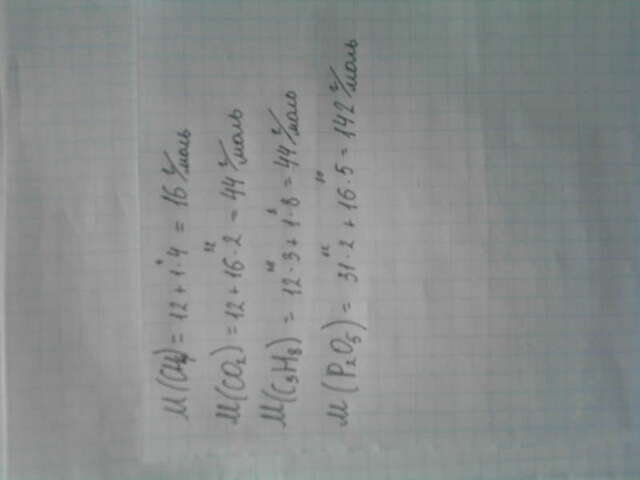 M(CH₄) = 12 + 1·4 = 16 г/моль
M(CO₂) = 12 + 16·2 = 44 г/моль
M(C₃H₈) = 12·3 + 1·8 = 44 г/моль
M(P₂O₅) = 31·2 + 16·5 = 142 г/моль